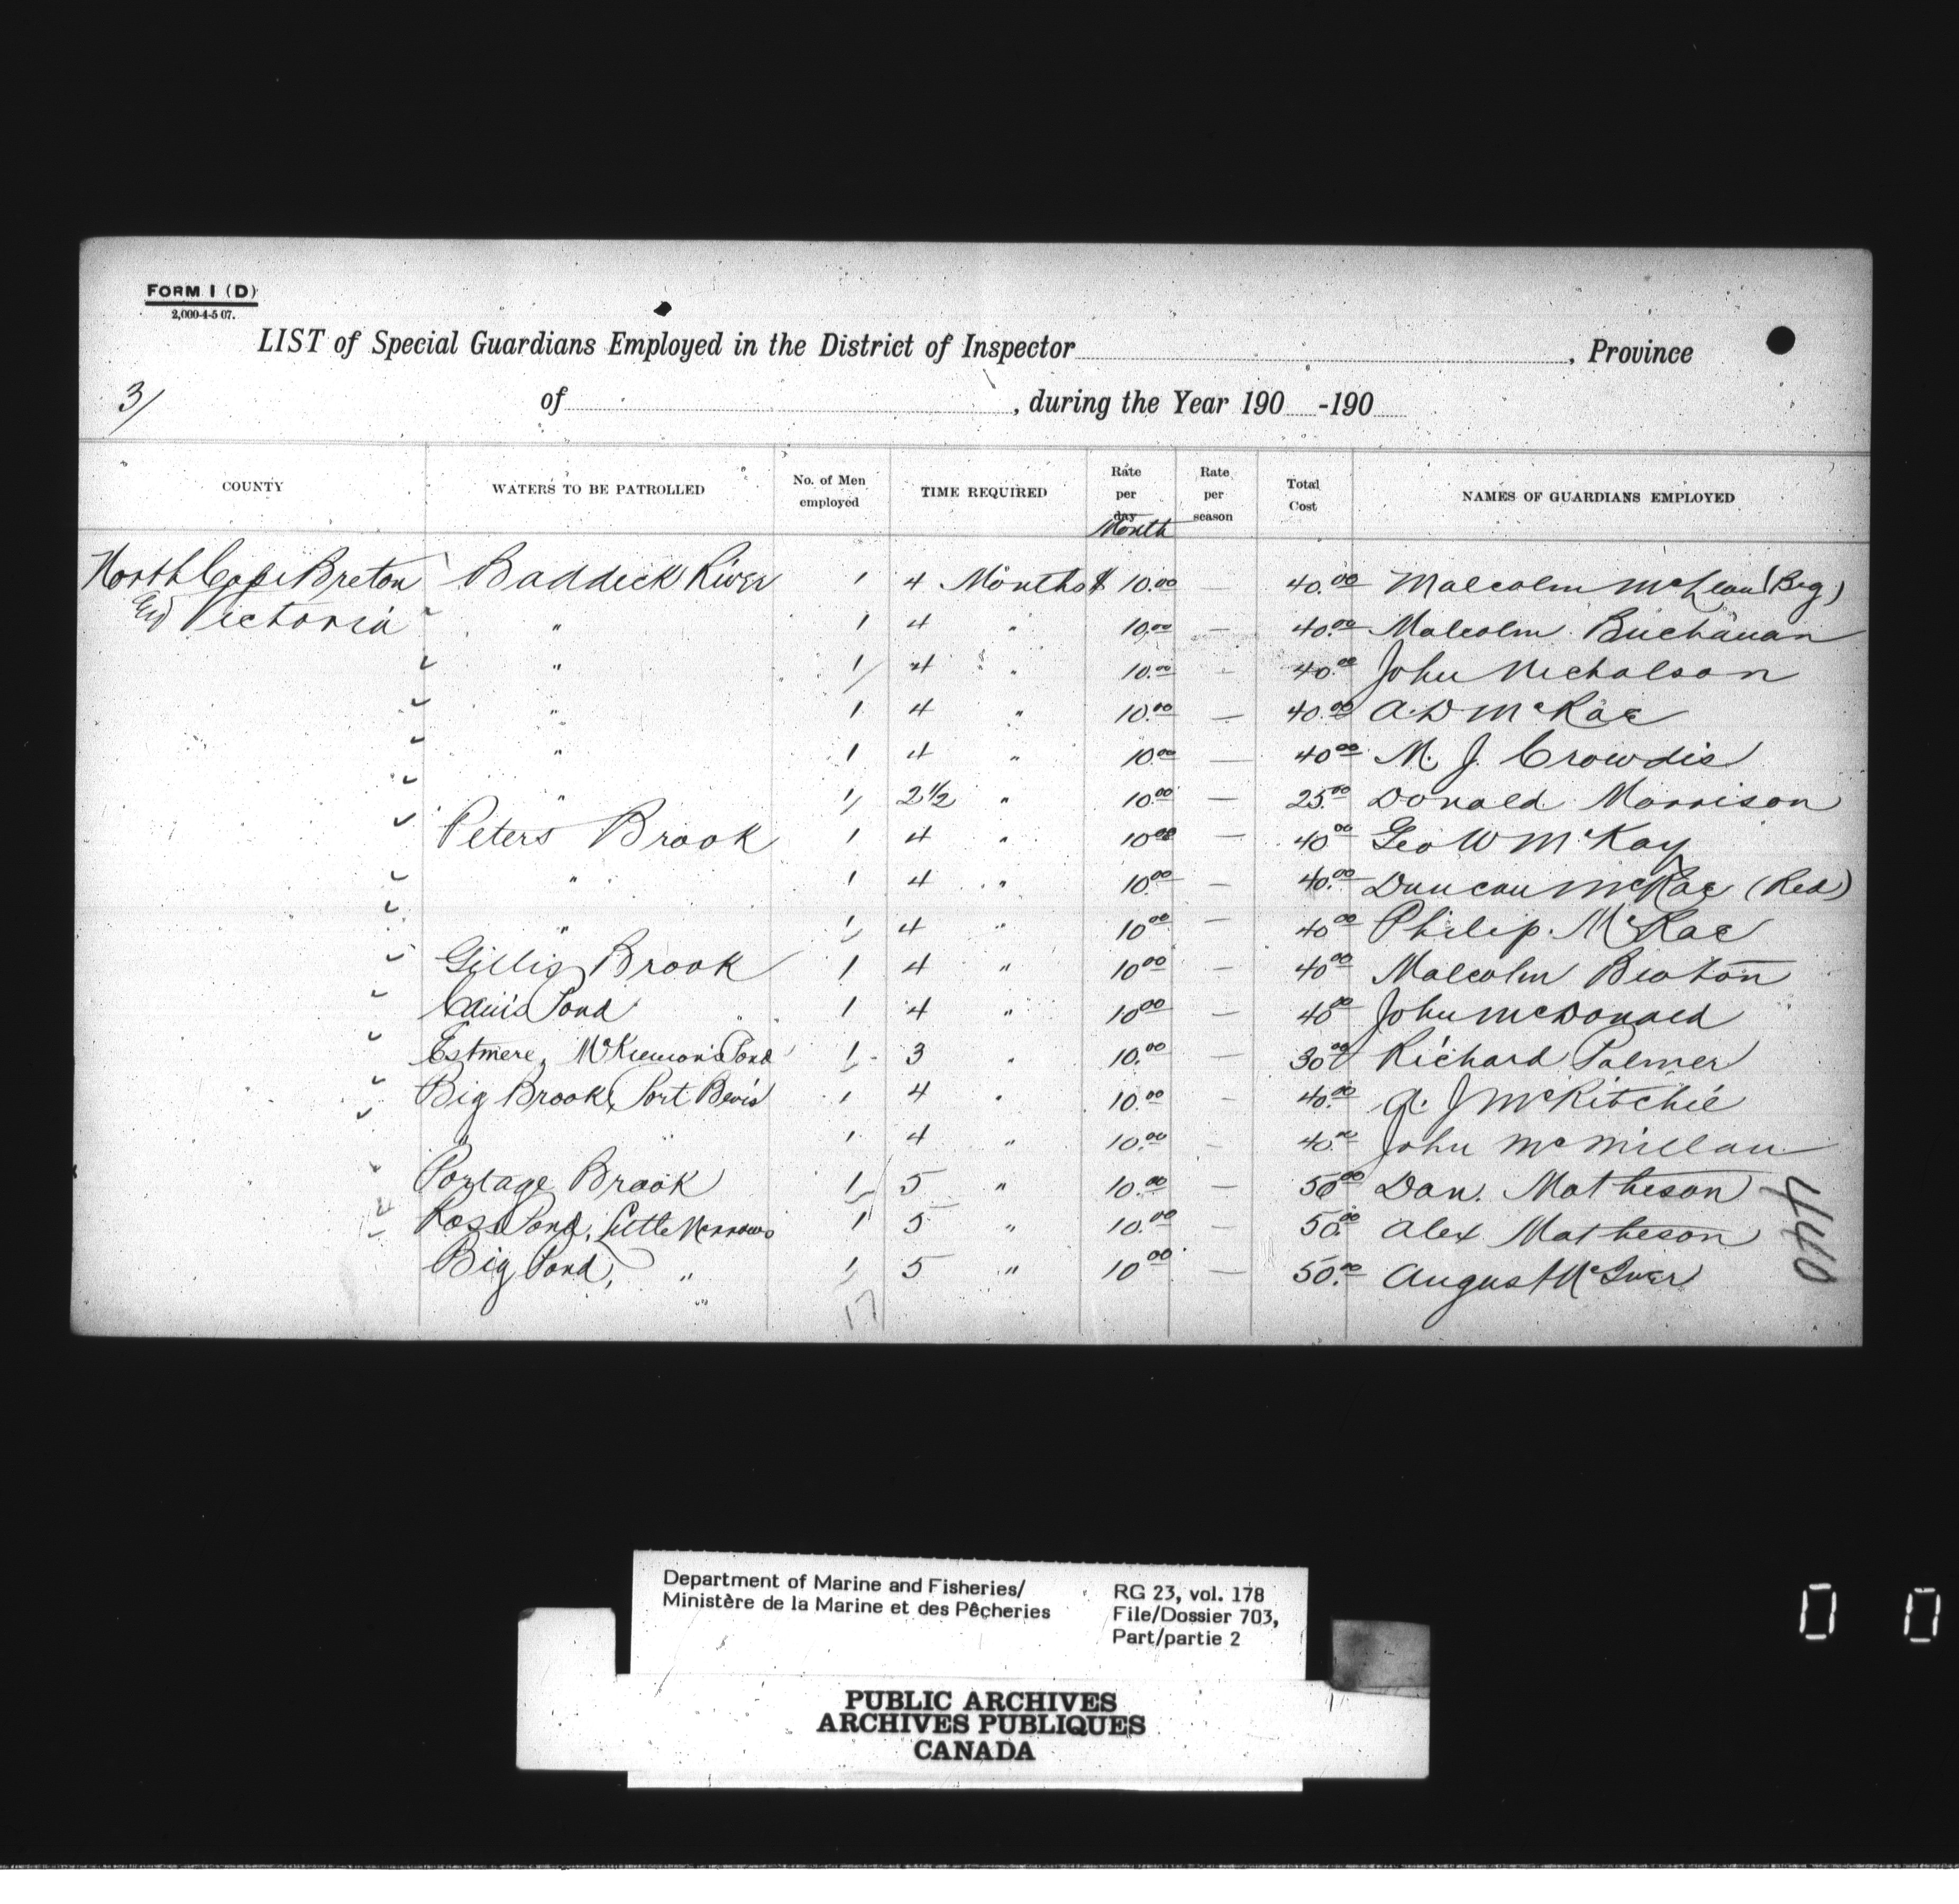 FORM 1 (D)
2,000-4-5 07.
LIST of Special Guardians Employed in the District of Inspector, Province
3/ of, during the Year 190 -190
COUNTY WATERS TO BE PATROLLED No. of Men employed TIME REQUIRED Rate per day Month Rate per season Total Cost NAMES OF GUARDIANS EMPLOYED
North Cape Breton Baddeck River 1 4 Months $ 10.00 — 40.00 Malcolm McLean (Big)
Victoria " 1 4 " 10.00 — 40.00 Malcolm Buchanan
" 1 4 " 10.00 — 40.00 John Nicholson
" 1 4 " 10.00 — 40.00 A. D McRae
" 1 4 " 10.00 — 40.00 M. J. Crowdis
" 1 2 1/2 " 10.00 — 25.00 Donald Morrison
Peters Brook 1 4 " 10.00 — 40.00 Geo W McKay
" 1 4 " 10.00 — 40.00 Duncan McRae (Red)
" 1 4 " 10.00 — 40.00 Philip McRae
Gillis Brook 1 4 " 10.00 — 40.00 Malcolm Beaton
Pond 1 4 " 10.00 — 40.00 John McDonald
Estmere, McKinnon's Pond 1 3 " 10.00 — 30.00 Richard Palmer
Big Brook, Port Bevis 1 4 " 10.00 — 40.00 A. J McRitchie
" 1 4 " 10.00 — 40.00 John McMillan
Portage Brook 1 5 " 10.00 — 50.00 Dan. Matheson
Ross Pond, Little Narrows 1 5 " 10.00 — 50.00 Alex Matheson
Big Pond, " 1 5 " 10.00 — 50.00 August McIver
"
17
440
Department of Marine and Fisheries/
Ministère de la Marine et des Pêcheries
RG 23, vol. 178
File/Dossier 703,
Part/partie 2
PUBLIC ARCHIVES
ARCHIVES PUBLIQUES
CANADA
0 0